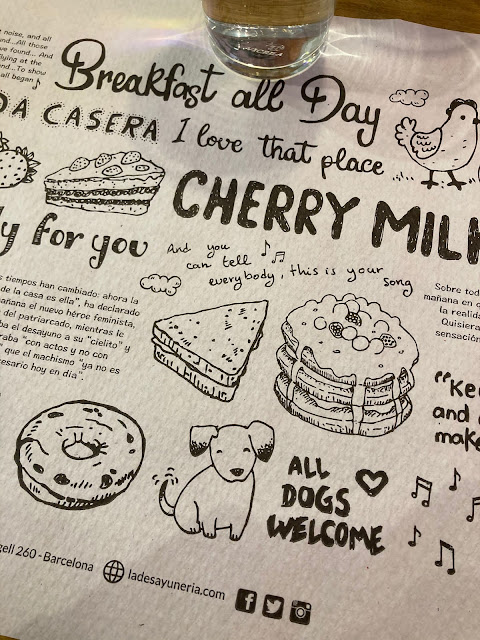 noise, and all
nd...All those
ve found... And
lying at the
nd...To show
all began
Breakfast all Day
DA CASERA
I love that place
CHERRY MILK
y for you
And you
can tell
everybody, this is your
song
s tiempos han cambiado: ahora la
de la casa es ella", ha declarado
mañana el nuevo héroe feminista,
del patriarcado, mientras le
ba el desayuno a su "cielito" y
raba "con actos y no con
que el machismo "ya no es
esario hoy en día".
Sobre tod
mañana en q
la realida
Quisiera
sensación
"Ke
and
make
ALL
DOGS
WELCOME
gell 260 - Barcelona
ladesayuneria.com